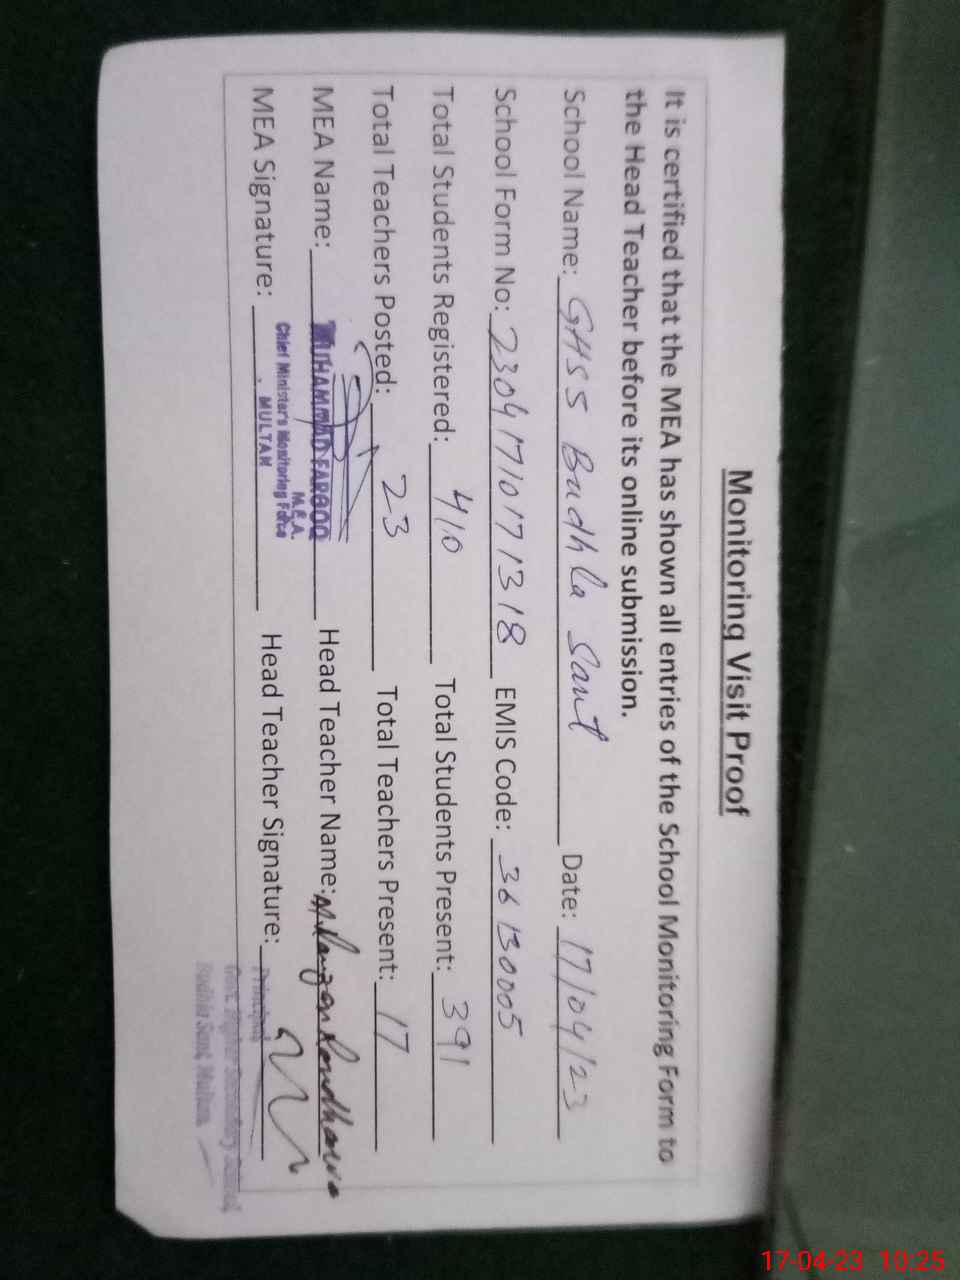 Monitoring Visit Proof
It is certified that the MEA has shown all entries of the School Monitoring Form to
the Head Teacher before its online submission.
School Name: GHSS Budhla Sant Date: 17/04/23
School Form No: 23041710171318 EMIS Code: 36130005
Total Students Registered: 410 Total Students Present: 391
Total Teachers Posted: 23 Total Teachers Present: 17
MEA Name: MUHAMMAD FAROOQ Head Teacher Name:
M.E.A.
Chief Minister's Monitoring Force
MULTAN
MEA Signature: Head Teacher Signature:
Principal
Govt. Higher Secondary School
Budhla Sant, Multan
17-04-23 10:25